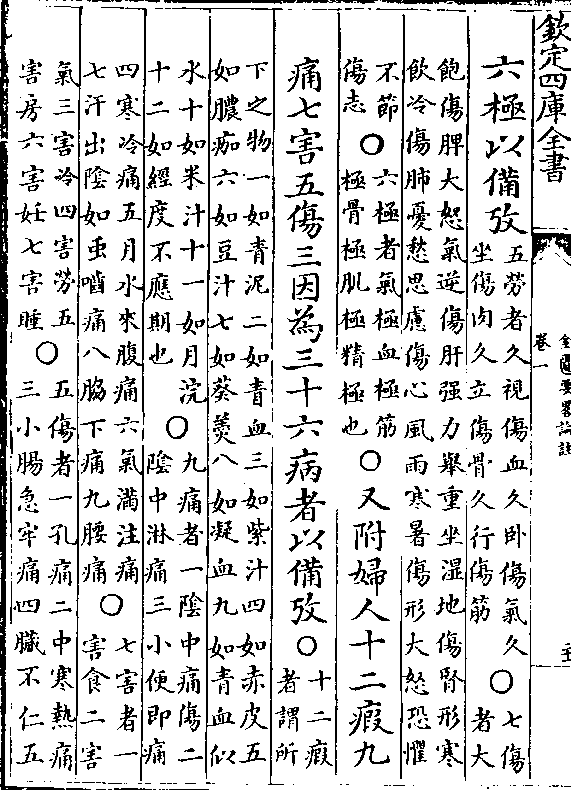 欽定四庫全書
金匱要畧論註
卷一
六極以備攷
五勞者久視傷血久卧傷氣久
坐傷肉久立傷骨久行傷筋
○
七傷
者大
飽傷脾大怒氣逆傷肝强力舉重坐湿地傷腎形寒
飲冷傷肺憂愁思慮傷心風雨寒暑傷形大怒恐懼
不節
傷志
○
六極者氣極血極筋
極骨極肌極精極也
○又附婦人十二瘕九
痛七害五傷三因為三十六病者以備攷○
十二瘕
者謂所
下之物一如青泥二如青血三如紫汁四如赤皮五
如膿痂六如豆汁七如葵羮八如凝血九如青血似
水十如米汁十一如月浣
十二如經度不應期也
○
九痛者一陰中痛傷二
陰中淋痛三小便即痛
四寒冷痛五月水來腹痛六氣滿注痛
七汗出陰如虫嚙痛八脇下痛九腰痛
○
七害者一
害食二害
氣三害冷四害勞五
害房六害妊七害睡
○
五傷者一孔痛二中寒熱痛
三小腸急牢痛四臟不仁五